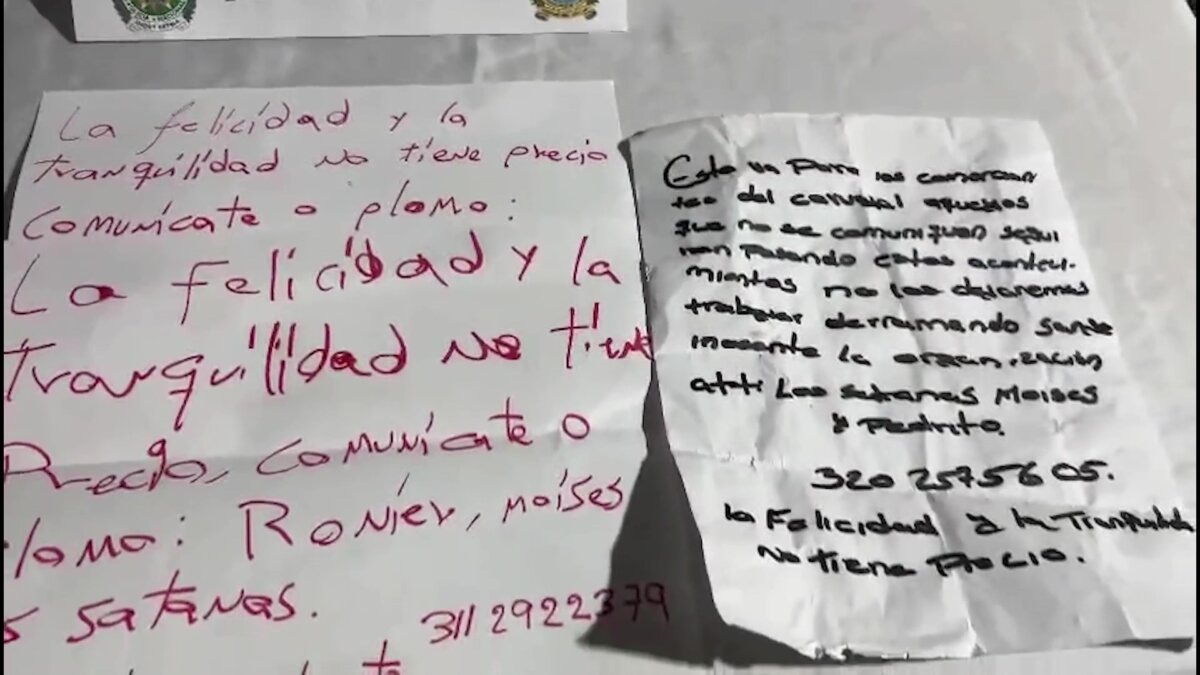 La felicidad y la
tranquilidad no tiene precio
comunícate o plomo:
La felicidad y la
tranquilidad no tiene
Precio, comunícate o
plomo: Ronier, moíses
s satanas.
311 2922379
Esto va Para los comercian
tes del carvajal aquellos
que no se comuniquen segui
ran Pasando estos aconteci-
mientos no los dejaremos
trabajar derramando sangre
inocente la organización
att: Los satanas Moises
y Pedrito.
320 2575605.
la Felicidad y la Tranquilida
No tiene Precio.